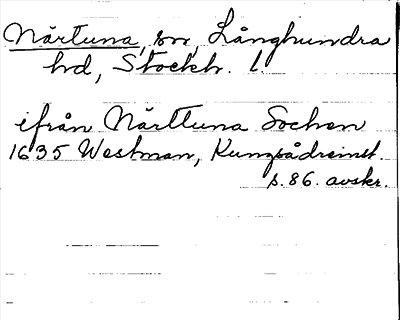 Närtuna, sn, Långhundra
hd, Stockh. l.
ifrån Närttuna Sochen
1635 Westman, Kungsådreinst.
s. 86. avskr.